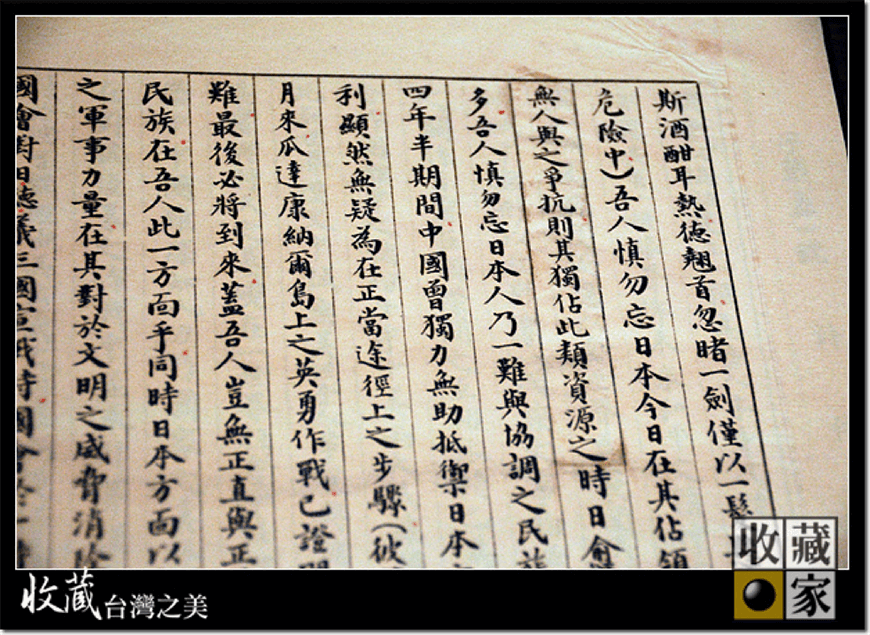 斯酒酣耳熱德翹首忽睹一劍僅以一髮
危險中）吾人慎勿忘日本今日在其佔領
無人與之爭抗則其獨佔此類資源之時日愈
多吾人慎勿忘日本人乃一難與協調之民族
四年半期間中國曾獨力無助抵禦日本
利顯然無疑為在正當途徑上之步驟（彼
月來瓜達康納爾島上之英勇作戰已證明
難最後必將到來蓋吾人豈無正直與正
民族在吾人此一方面乎同時日本方面以
之軍事力量在其對於文明之威脅消除
國會對日德義三國宣戰時國會於一
收藏家
收藏台灣之美